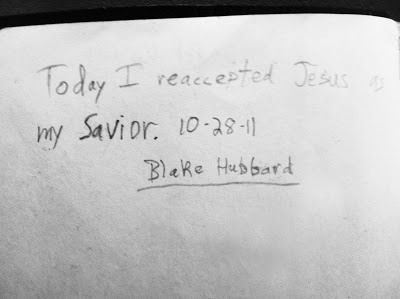 Today I reaccepted Jesus as
my Savior. 10-28-11
Blake Hubbard